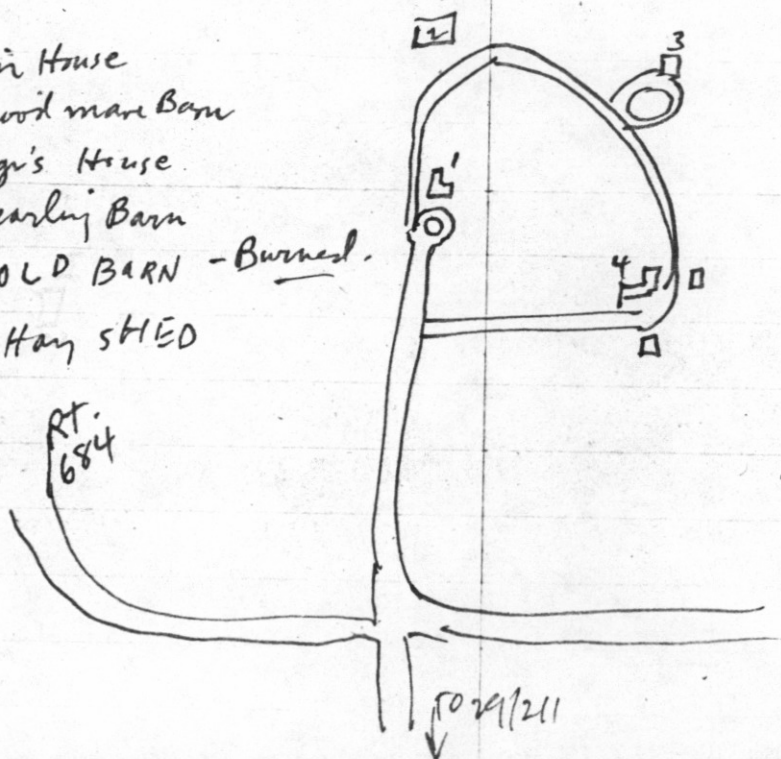 in House
ood mare Barn
gr's House
earling Barn
OLD BARN - Burned.
Hay SHED
Rt.
684
2
3
1
4
TO 29/211